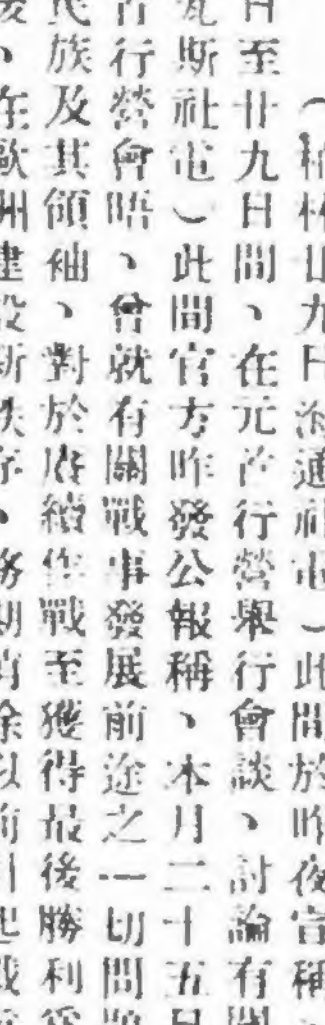 （柏林廿九日海通社電）此間於昨夜宣稱、
日至廿九日間、在元首行營舉行會談、討論有關
瓦斯社電）此間官方昨發公報稱、本月二十五日
首行營會晤、曾就有關戰事發展前途之一切問題
族及其領袖、對於賡續作戰至獲得最後勝利
、在歐洲建設新秩序、務期消除以前引起戰